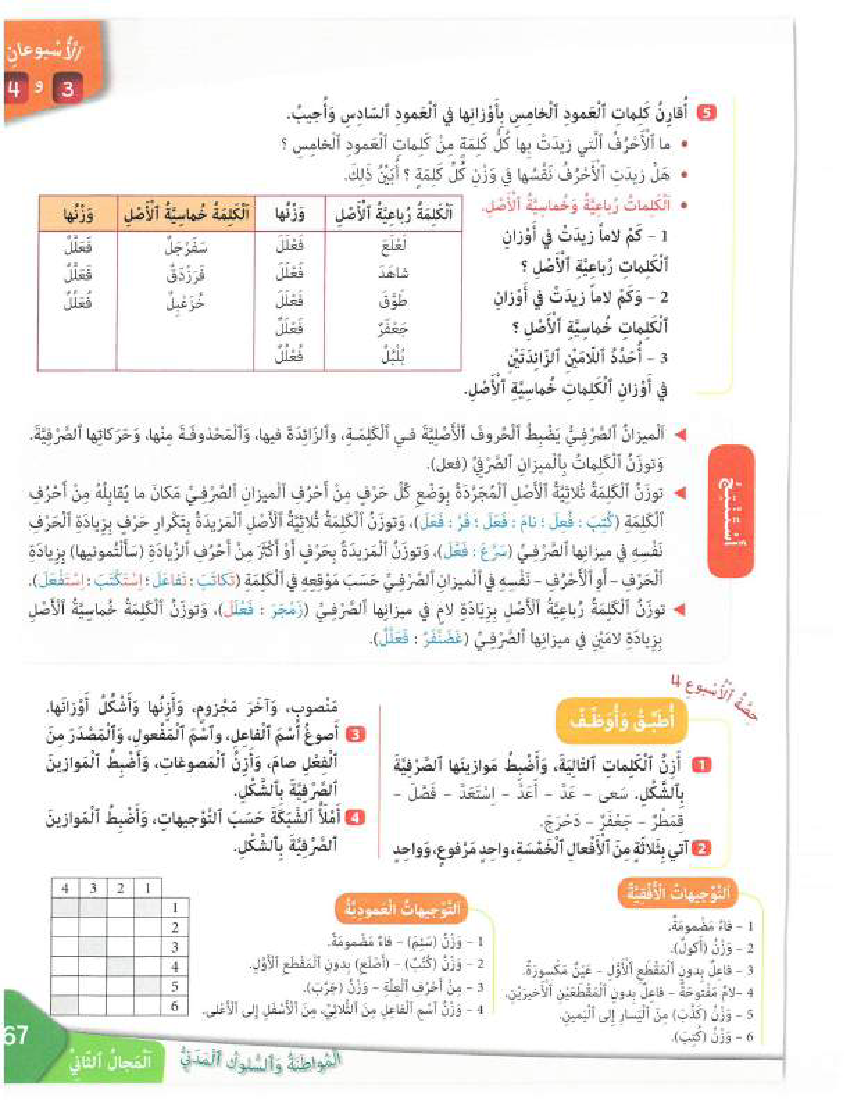 الْأُسْبوعانِ
3 و 4
5 أُقارِنُ كَلِماتِ الْعَمودِ الْخامِسِ بِأَوْزانِها في الْعَمودِ السّادِسِ وَأُجيبُ.
• ما الْأَحْرُفُ الَّتي زيدَتْ بِها كُلُّ كَلِمَةٍ مِنْ كَلِماتِ الْعَمودِ الْخامِسِ ؟
• هَلْ زيدَتِ الْأَحْرُفُ نَفْسُها في وَزْنِ كُلِّ كَلِمَةٍ ؟ أُبَيِّنُ ذَلِكَ.
• الْكَلِماتُ رُباعِيَّةُ وَخُماسِيَّةُ الْأَصْلِ.
1 - كَمْ لاماً زيدَتْ في أَوْزانِ
الْكَلِماتِ رُباعِيَّةِ الْأَصْلِ ؟
2 - وَكَمْ لاماً زيدَتْ في أَوْزانِ
الْكَلِماتِ خُماسِيَّةِ الْأَصْلِ ؟
3 - أُحَدِّدُ اللّامَيْنِ الزّائِدَتَيْنِ
في أَوْزانِ الْكَلِماتِ خُماسِيَّةِ الْأَصْلِ.
الْكَلِمَةُ رُباعِيَّةُ الْأَصْلِ وَزْنُها الْكَلِمَةُ خُماسِيَّةُ الْأَصْلِ وَزْنُها
لَعْلَعَ فَعْلَلَ سَفَرْجَلٌ فَعَلَّلٌ
شاهَدَ فَعْلَلَ فَرَزْدَقٌ فَعَلَّلٌ
طَوَّقَ فَعْلَلَ خُزَعْبِلٌ فُعَلِّلٌ
جَعْفَرٌ فَعْلَلٌ
بُلْبُلٌ فُعْلُلٌ
أَسْتَنْتِجُ
◀ الْميزانُ الصَّرْفِيُّ يَضْبِطُ الْحُروفَ الْأَصْلِيَّةَ في الْكَلِمَةِ، وَالزّائِدَةَ فيها، وَالْمَحْذوفَةَ مِنْها، وَحَرَكاتِها الصَّرْفِيَّةَ.
وَتوزَنُ الْكَلِماتُ بِالْميزانِ الصَّرْفِيِّ (فعل).
◀ توزَنُ الْكَلِمَةُ ثُلاثِيَّةُ الْأَصْلِ الْمُجَرَّدَةُ بِوَضْعِ كُلِّ حَرْفٍ مِنْ أَحْرُفِ الْميزانِ الصَّرْفِيِّ مَكانَ ما يُقابِلُهُ مِنْ أَحْرُفِ
الْكَلِمَةِ (كُتِبَ : فُعِلَ ؛ نامَ : فَعَلَ ؛ فَرَّ : فَعَلَ)، وَتوزَنُ الْكَلِمَةُ ثُلاثِيَّةُ الْأَصْلِ الْمَزيدَةُ بِتَكْرارِ حَرْفٍ بِزِيادَةِ الْحَرْفِ
نَفْسِهِ في ميزانِها الصَّرْفِيِّ (سَرَّعَ : فَعَّلَ)، وَتوزَنُ الْمَزيدَةُ بِحَرْفٍ أَوْ أَكْثَرَ مِنْ أَحْرُفِ الزِّيادَةِ (سَأَلْتُمونيها) بِزِيادَةِ
الْحَرْفِ - أَوِ الْأَحْرُفِ - نَفْسِهِ في الْميزانِ الصَّرْفِيِّ حَسَبَ مَوْقِعِهِ في الْكَلِمَةِ (تَكاتَبَ : تَفاعَلَ ؛ اِسْتَكْتَبَ : اِسْتَفْعَلَ).
◀ توزَنُ الْكَلِمَةُ رُباعِيَّةُ الْأَصْلِ بِزِيادَةِ لامٍ في ميزانِها الصَّرْفِيِّ (زَمْجَرَ : فَعْلَلَ)، وَتوزَنُ الْكَلِمَةُ خُماسِيَّةُ الْأَصْلِ
بِزِيادَةِ لامَيْنِ في ميزانِها الصَّرْفِيِّ (غَضَنْفَرٌ : فَعَلَّلٌ).
حِصَّةُ الْأُسْبوعِ 4
أُطَبِّقُ وَأُوَظِّفُ
1 أَزِنُ الْكَلِماتِ التّالِيَةَ، وَأَضْبِطُ مَوازينَها الصَّرْفِيَّةَ
بِالشَّكْلِ. سَعى - عَدَّ - أَعَدَّ - اِسْتَعَدَّ - فَضَّلَ -
قِمَطْرٌ - جَعْفَرٌ - دَحْرَجَ.
2 آتي بِثَلاثَةٍ مِنَ الْأَفْعالِ الْخَمْسَةِ، واحِدٍ مَرْفوعٍ، وَواحِدٍ
مَنْصوبٍ، وَآخَرَ مَجْزومٍ، وَأَزِنُها وَأَشْكُلُ أَوْزانَها.
3 أَصوغُ اسْمَ الْفاعِلِ، وَاسْمَ الْمَفْعولِ، وَالْمَصْدَرَ مِنَ
الْفِعْلِ صامَ، وَأَزِنُ الْمَصوغاتِ، وَأَضْبِطُ الْمَوازينَ
الصَّرْفِيَّةَ بِالشَّكْلِ.
4 أَمْلَأُ الشَّبَكَةَ حَسَبَ التَّوْجيهاتِ، وَأَضْبِطُ الْمَوازينَ
الصَّرْفِيَّةَ بِالشَّكْلِ.
التَّوْجيهاتُ الْأُفُقِيَّةُ
1 - فاءٌ مَضْمومَةٌ.
2 - وَزْنُ (أَكولٌ).
3 - فاعلٌ بِدونِ الْمَقْطَعِ الْأَوَّلِ - عَيْنٌ مَكْسورَةٌ.
4 - لامٌ مَفْتوحَةٌ - فاعلٌ بِدونِ الْمَقْطَعَيْنِ الْأَخيرَيْنِ.
5 - وَزْنُ (كَذَّبَ) مِنَ الْيَسارِ إِلى الْيَمينِ.
6 - وَزْنُ (كُتِبَ).
التَّوْجيهاتُ الْعَمودِيَّةُ
1 - وَزْنُ (سَلِمَ) - فاءٌ مَضْمومَةٌ.
2 - وَزْنُ (كُتُبٌ) - (أَصْلَعُ) بِدونِ الْمَقْطَعِ الْأَوَّلِ.
3 - مِنْ أَحْرُفِ الْعِلَّةِ - وَزْنُ (جَرَّبَ).
4 - وَزْنُ اسْمِ الْفاعِلِ مِنَ الثُّلاثِيِّ، مِنَ الْأَسْفَلِ إِلى الْأَعْلى.
4 3 2 1
1
2
3
4
5
6
67
الْمَجالُ الثّاني
الْمُواطَنَةُ وَالسُّلوكُ الْمَدَنِيُّ